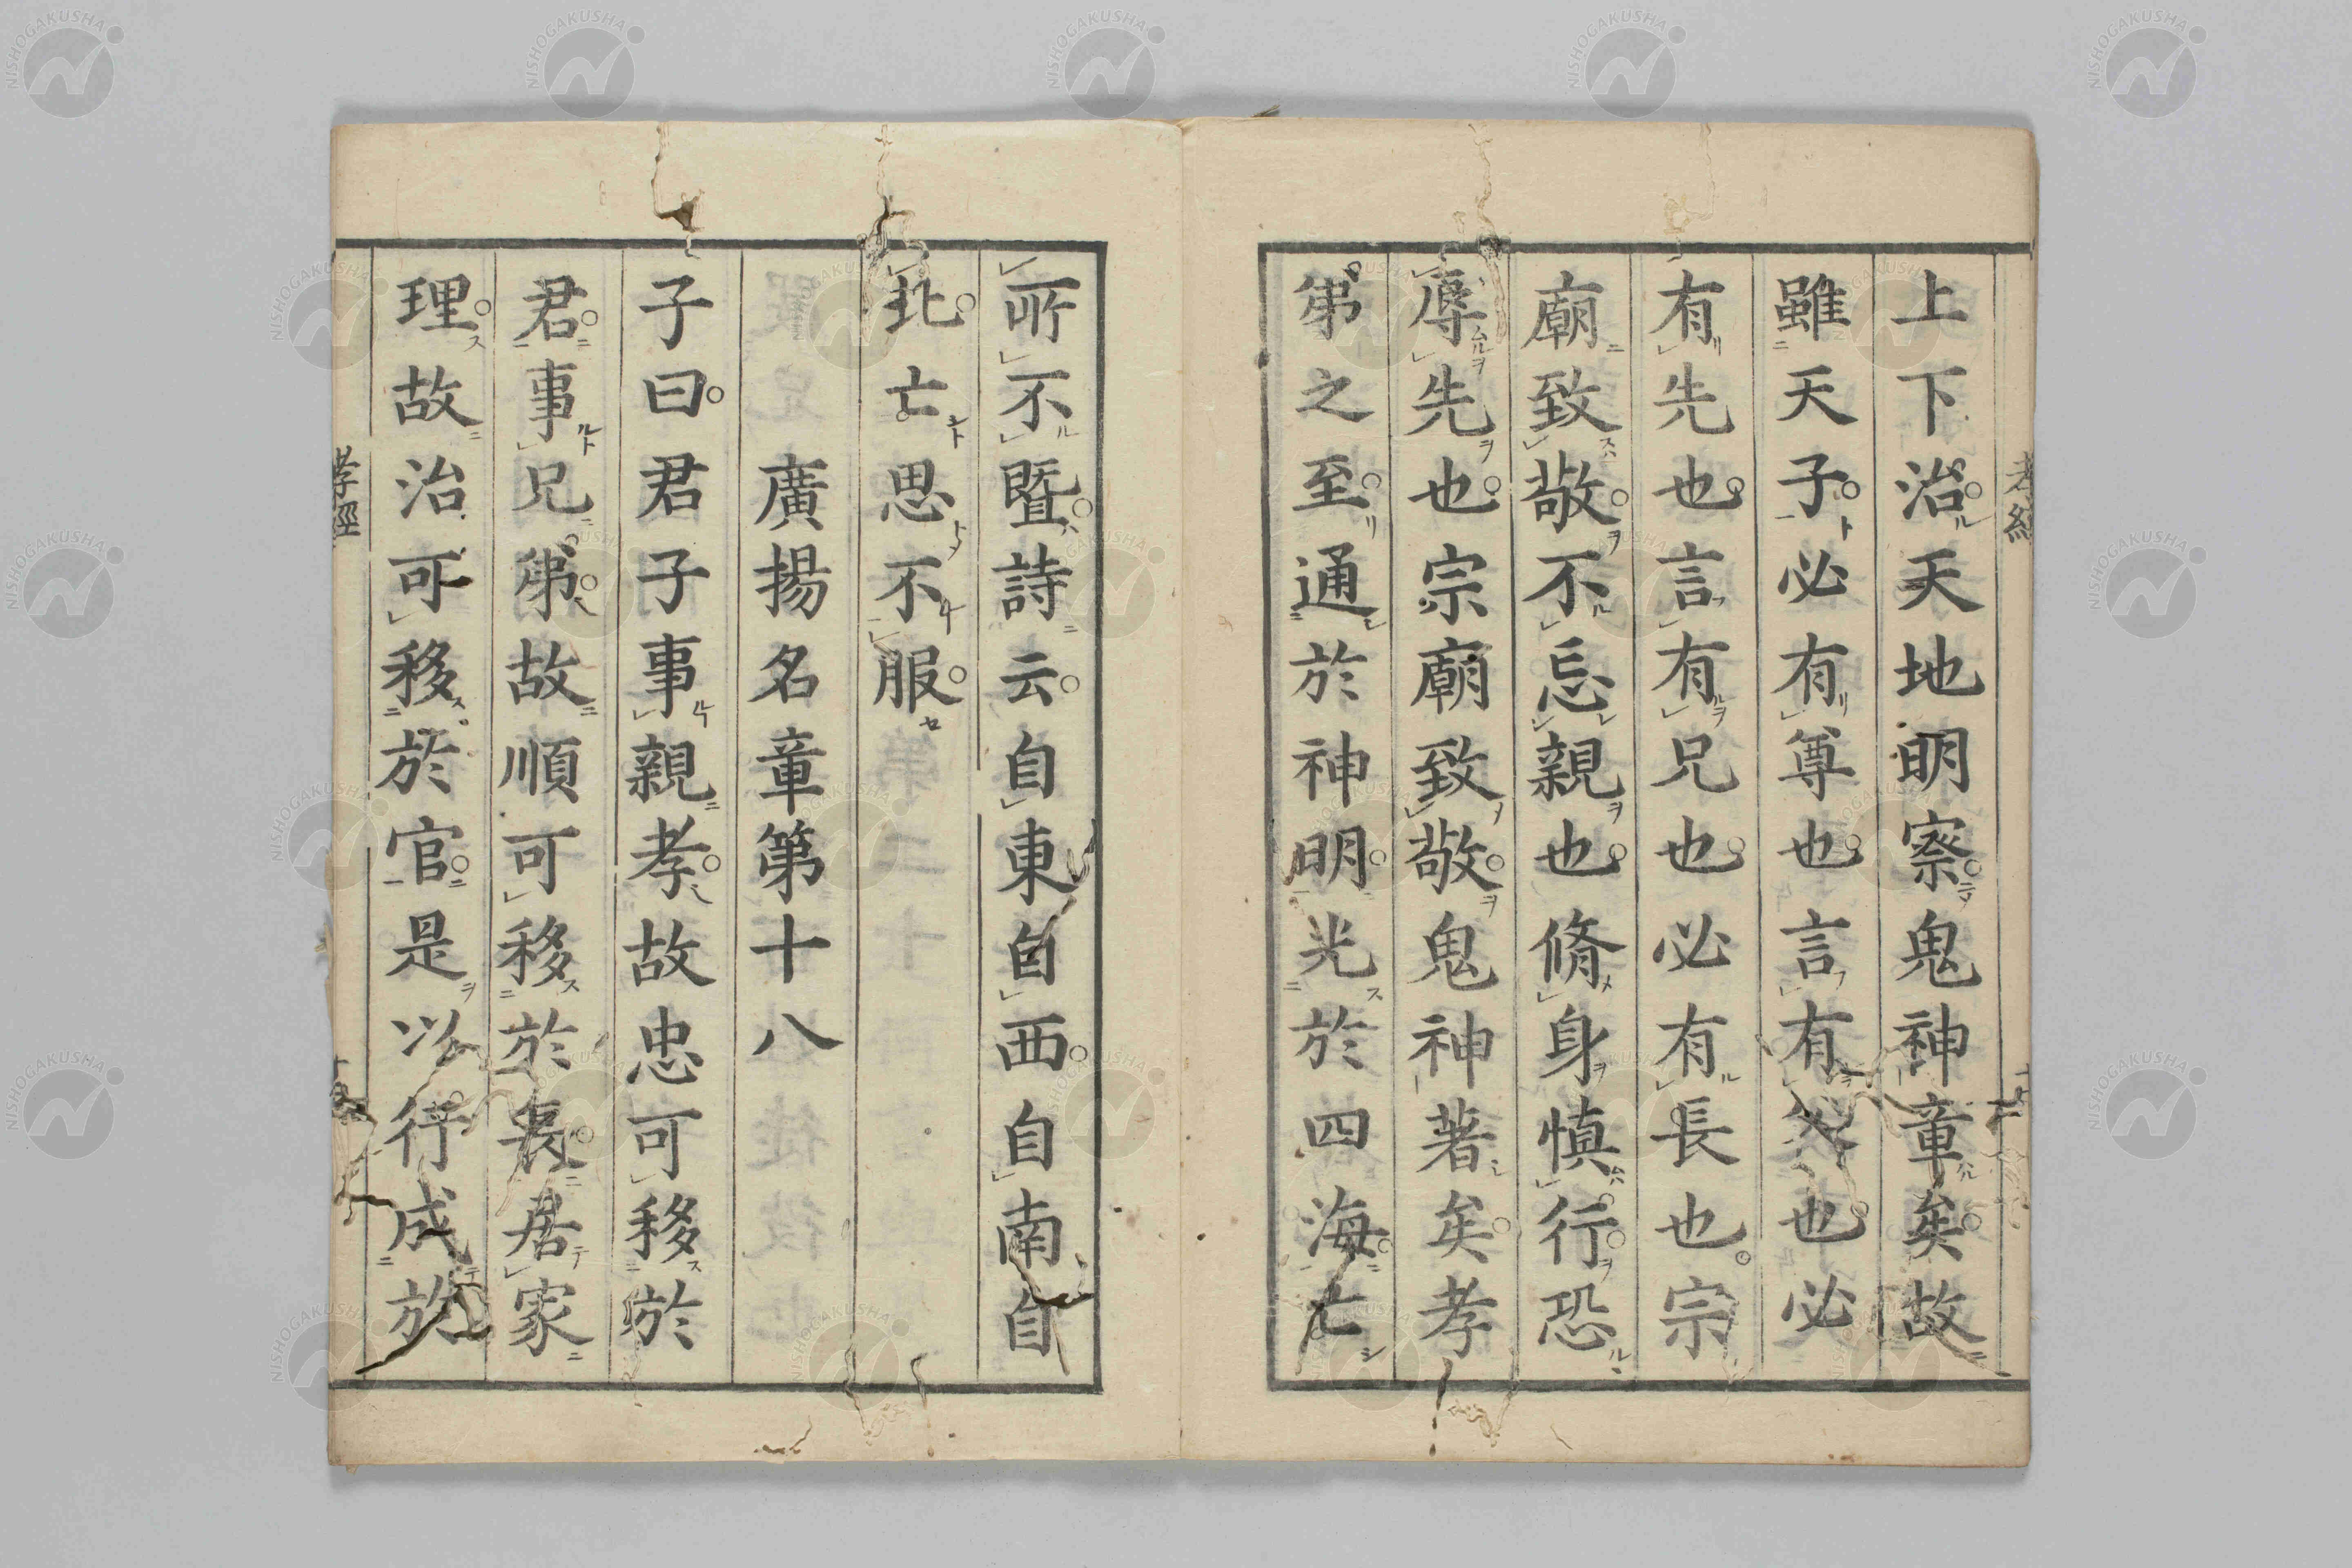 上下治天地明察鬼神章矣故
雖天子必有尊也言有父也必
有先也言有兄也必有長也宗
廟致敬不忘親也脩身慎行恐
辱先也宗廟致敬鬼神著矣孝
弟之至通於神明光於四海亡
所不曁詩云自東自西自南自
北亡思不服
廣揚名章第十八
子曰君子事親孝故忠可移於
君事兄弟故順可移於長居家
理故治可移於官是以行成於
孝經
NISHOGAKUSHA